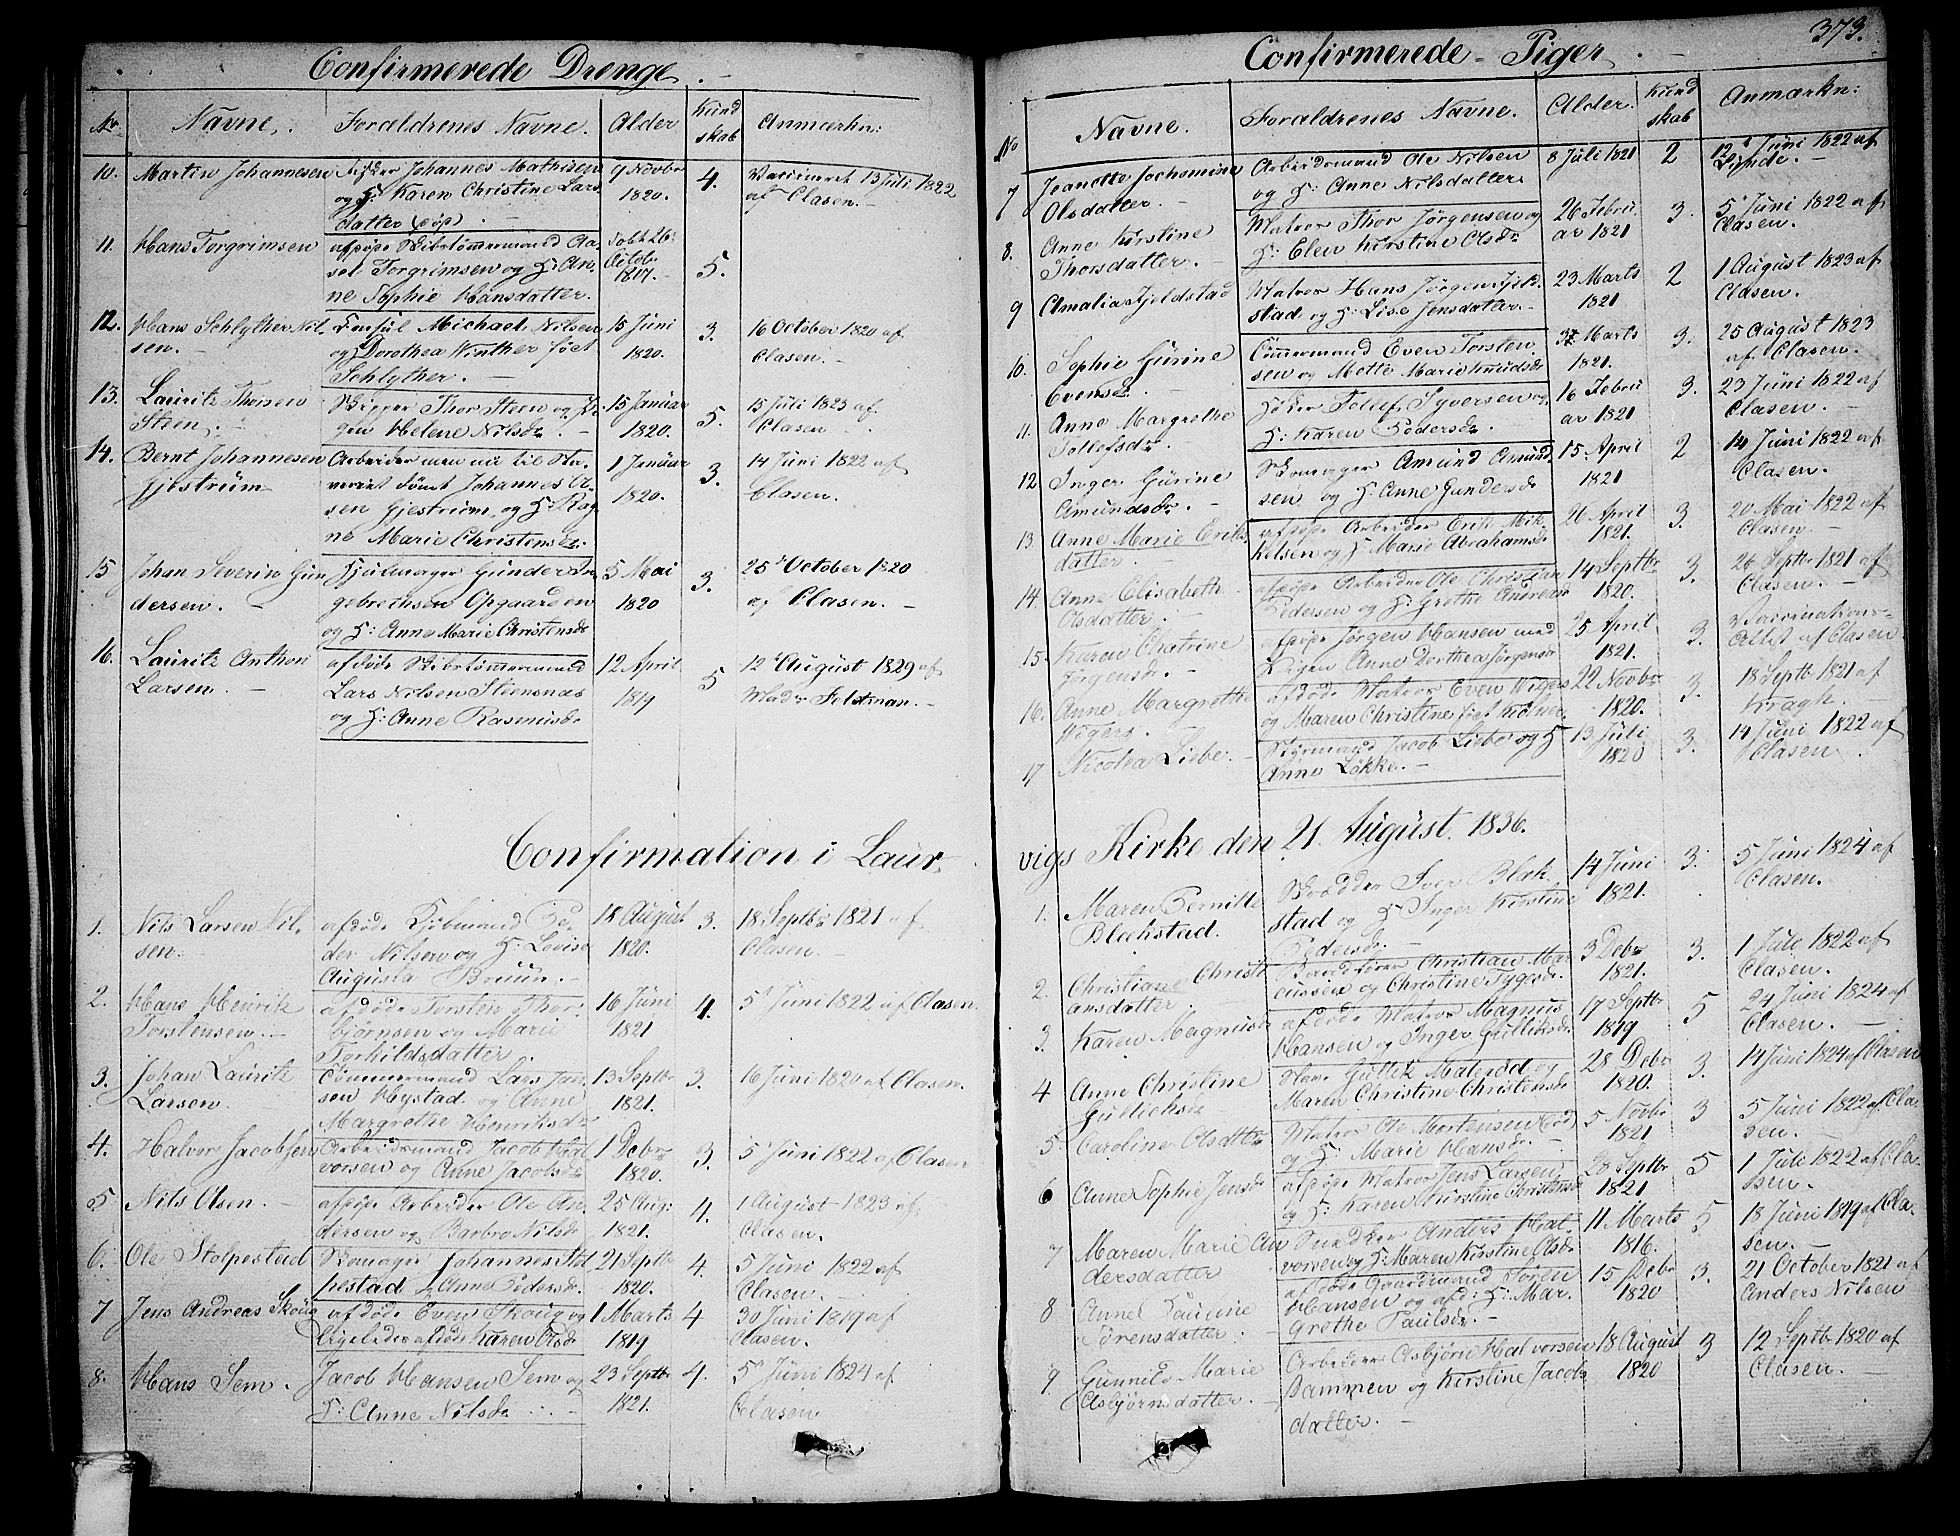 Confirmerede Drenge.
No. Navne. Forældrenes Navne. Alder Kund skab Anmærkn:
10. Martin Johannesen Johannes Mathisen 9 Novbr 4. Vaccineret 13 Juli 1822
og H: Karen Christine Lars 1820. af Clasen.
datter
11. Hans Torgrimsen Skibstømmermand Aa- Døbt 26: 5.
sel Torgrimsen og H: An- Octobr
ne Sophie Hansdatter. 1817.
12. Hans Schlyther Nil- Michael Nilsen 15 Juni 3. 16 October 1820 af
sen. og Dorothea Winther født 1820. Clasen.
Schlyther.
13. Lauritz Thorsen Skipper Thor Steen og 15 Januar 5. 15 Juli 1823 af
Steen. gen Helene Nilsdr. 1820. Clasen.
14. Bernt Johannesen Arbeider men nu til Sla- 1 Januar 3. 14 Juni 1822 af
Gjestrüm veriet dømt Johannes 1820. Clasen.
sen Gjestrüm og H: Rag
ne Marie Christensdr:
15 Johan Severin Gun Hjulmager Gunder In 5 Mai 3. 25 October 1820
dersen. gebrethsen Opgaarden 1820 af Clasen.
og H: Anne Marie Christensdr
16. Lauritz Anthon afdøde Skibstømmermand 12 April 5 12 August 1829 af
Larsen. Lars Nilsen Steensnæs 1819 Feldtman.
og H: Anne Rasmusdr
Confirmation i Laur-
1. Nils Larsen Nil- afdøde Kjøbmand Pe- 18 August 3. 18 Septbr 1821 af
sen. der Nilsen og H: Lovise 1820. Clasen.
Augusta Bruun.
2. Hans Henrik afdøde Torsten Thor 16 Juni 4. 5 Juni 1822 af Clasen.
Torstensen. bjørnsen og Marie 1821
Torkildsdatter.
3. Johan Lauritz Tømmermand Lars Jan 13 Septbr 3. 16 Juni 1820 af Clasen.
Larsen. sen Hystad og Anne 1821.
Margrethe Henriksdr
4. Halvor Jacobsen Arbeidsmand Jacob Hal 1 Debr 3. 5 Juni 1822 af Clasen
vorsen og Anne Jacobsdr 1820.
5 Nils Olsen. Arbeider Ole An 25 Aug: 4. 1 August 1823 af
dersen og Barbro Nilsdr 1821. Clasen.
6. Ole Stolpestad Skomager Johannes Stol 21 Septbr 4. 5 Juni 1822 af
pestad Anne Pedersdr. 1820. Clasen.
7 Jens Andreas Skoug afdøde Even Skoug og 1 Marts 4 30 Juni 1819 af
ligeledes afdøde Karen Olsdr 1819 Clasen.
8. Hans Sem. Jacob Hansen Sem og 23 Septbr 4. 5 Juni 1824 af
H: Anne Nilsdr 1821. Clasen
Confirmerede Piger. 373.
No Navne. Forældrenes Navne. Alder. Kund skab Anmærkn:
7 Jeanette Jochomine Arbeidsmand Ole Nilsen 8 Juli 1821 2 12 Juni 1822 af
Olsdatter. og H: Anne Nilsdatter. Lynde.
8. Anne Kirstine Matros Thor Jørgensen og 26 Febru 3. 5 Juni 1822 af
Thorsdatter. H: Elen Kirstine Olsdr ar 1821 Clasen.
9 Amalia Fjeldstad Matros Hans Jørgen Fjeld 23 Marts 2 1 August 1823 af
stad og H: Lise Jensdatter. 1821 Clasen.
10. Sophie Gurine Tømmermand Even Torsten Marts 3. 25 August 1823
Evensdr. sen og Mette Marie Knudsdr 1821. af Clasen.
11. Anne Margrethe Høker Tollef Syversen og 16 Febru 3. 23 Juni 1822 af
Tollefsdr. H: Karen Pedersdr. ar 1821 Clasen.
12 Inger Gurine Skomager Amund Amund 15 April 2 14 Juni 1822 af
Amundsdr. sen og H: Anne Gundersdr 1821 Clasen.
13. Anne Marie Eriks Arbeider Erik Mik- 26 April 3. 20 Mai 1822 af
datter. kelsen og H: Marie Abrahamsdr 1821. Clasen
14. Anne Elisabeth Arbeider Ole Christian 14 Septbr 3. 26 Septbr 1821 af
Olsdatter. Pedersen og H: Grethe Andreas 1820. Clasen.
15. Karen Chatrine Jørgen Hansen med 25 April 3. Vaccinations-
Jørgensdr. Pigen Anne Dorthea Jørgensdr 1821. Attest af Clasen
16. Anne Margrethe afdøde Matros Even Wigers 22 Novbr 3. 18 Septbr 1821 af
Wigers. og Maren Christine født 1820. Kragh
17 Nicolea Liebe. Styrmand Jacob Liebe og H 13 Juli 3. 14 Juni 1822 af
Anne Løkke. 1820 Clasen
vigs Kirke den 21. August 1836.
1. Maren Pernille Skrædder Iver Blek 14 Juni 3. 5 Juni 1824 af
Blekstad. stad og H Inger Kirstine 1821. Clasen.
Pedersdr.
2. Christiane Christi Christian Mar 3 Debr 3. 1 Juli 1822 af
ansdatter. cussen og Christine Tygesdr. 1821. Clasen.
3. Karen Magnusdr afdøde Matros Magnus 17 Septbr 5 24 Juni 1824 af
Hansen og Inger Gulliksdr. 1819 Clasen.
4 Anne Christine Gullik Malerød og 28 Debr 3. 14 Juni 1824 af Clasen
Gullichsdr Maren Christine Christensdr 1820.
5. Caroline Olsdttr Matros Ole Mortensen 5 Novbr 3 5 Juni 1822 af Cla
og H: Marie Hansdr. 1821 sen.
6 Anne Sophie Jensdr Matros Jens Larsen 28 Septbr 5 1 Juli 1822 af Cla-
og H: Karen Kirstine Christensdr 1821 sen.
7 Maren Marie An Snedker Anders Hal 11 Marts 5 18 Juni 1819 af Cla-
dersdatter vorsen og H: Maren Kirstine Olsdr 1816. sen.
8 Anne Pauline afdøde Gaardmand Søren 15 Debr 3. 21 October 1821 af
Sørensdatter. Hansen og afd: H: Mar. 1820 Anders Nilsen
Grethe Paulsdr.
9 Gunnild Marie Arbeider Asbjørn Halvorsen 18 August 3 12 Septbr 1820 af
Asbjørnsdatter. Dammen og Kirstine Jacobs 1820 Clasen.
datter.